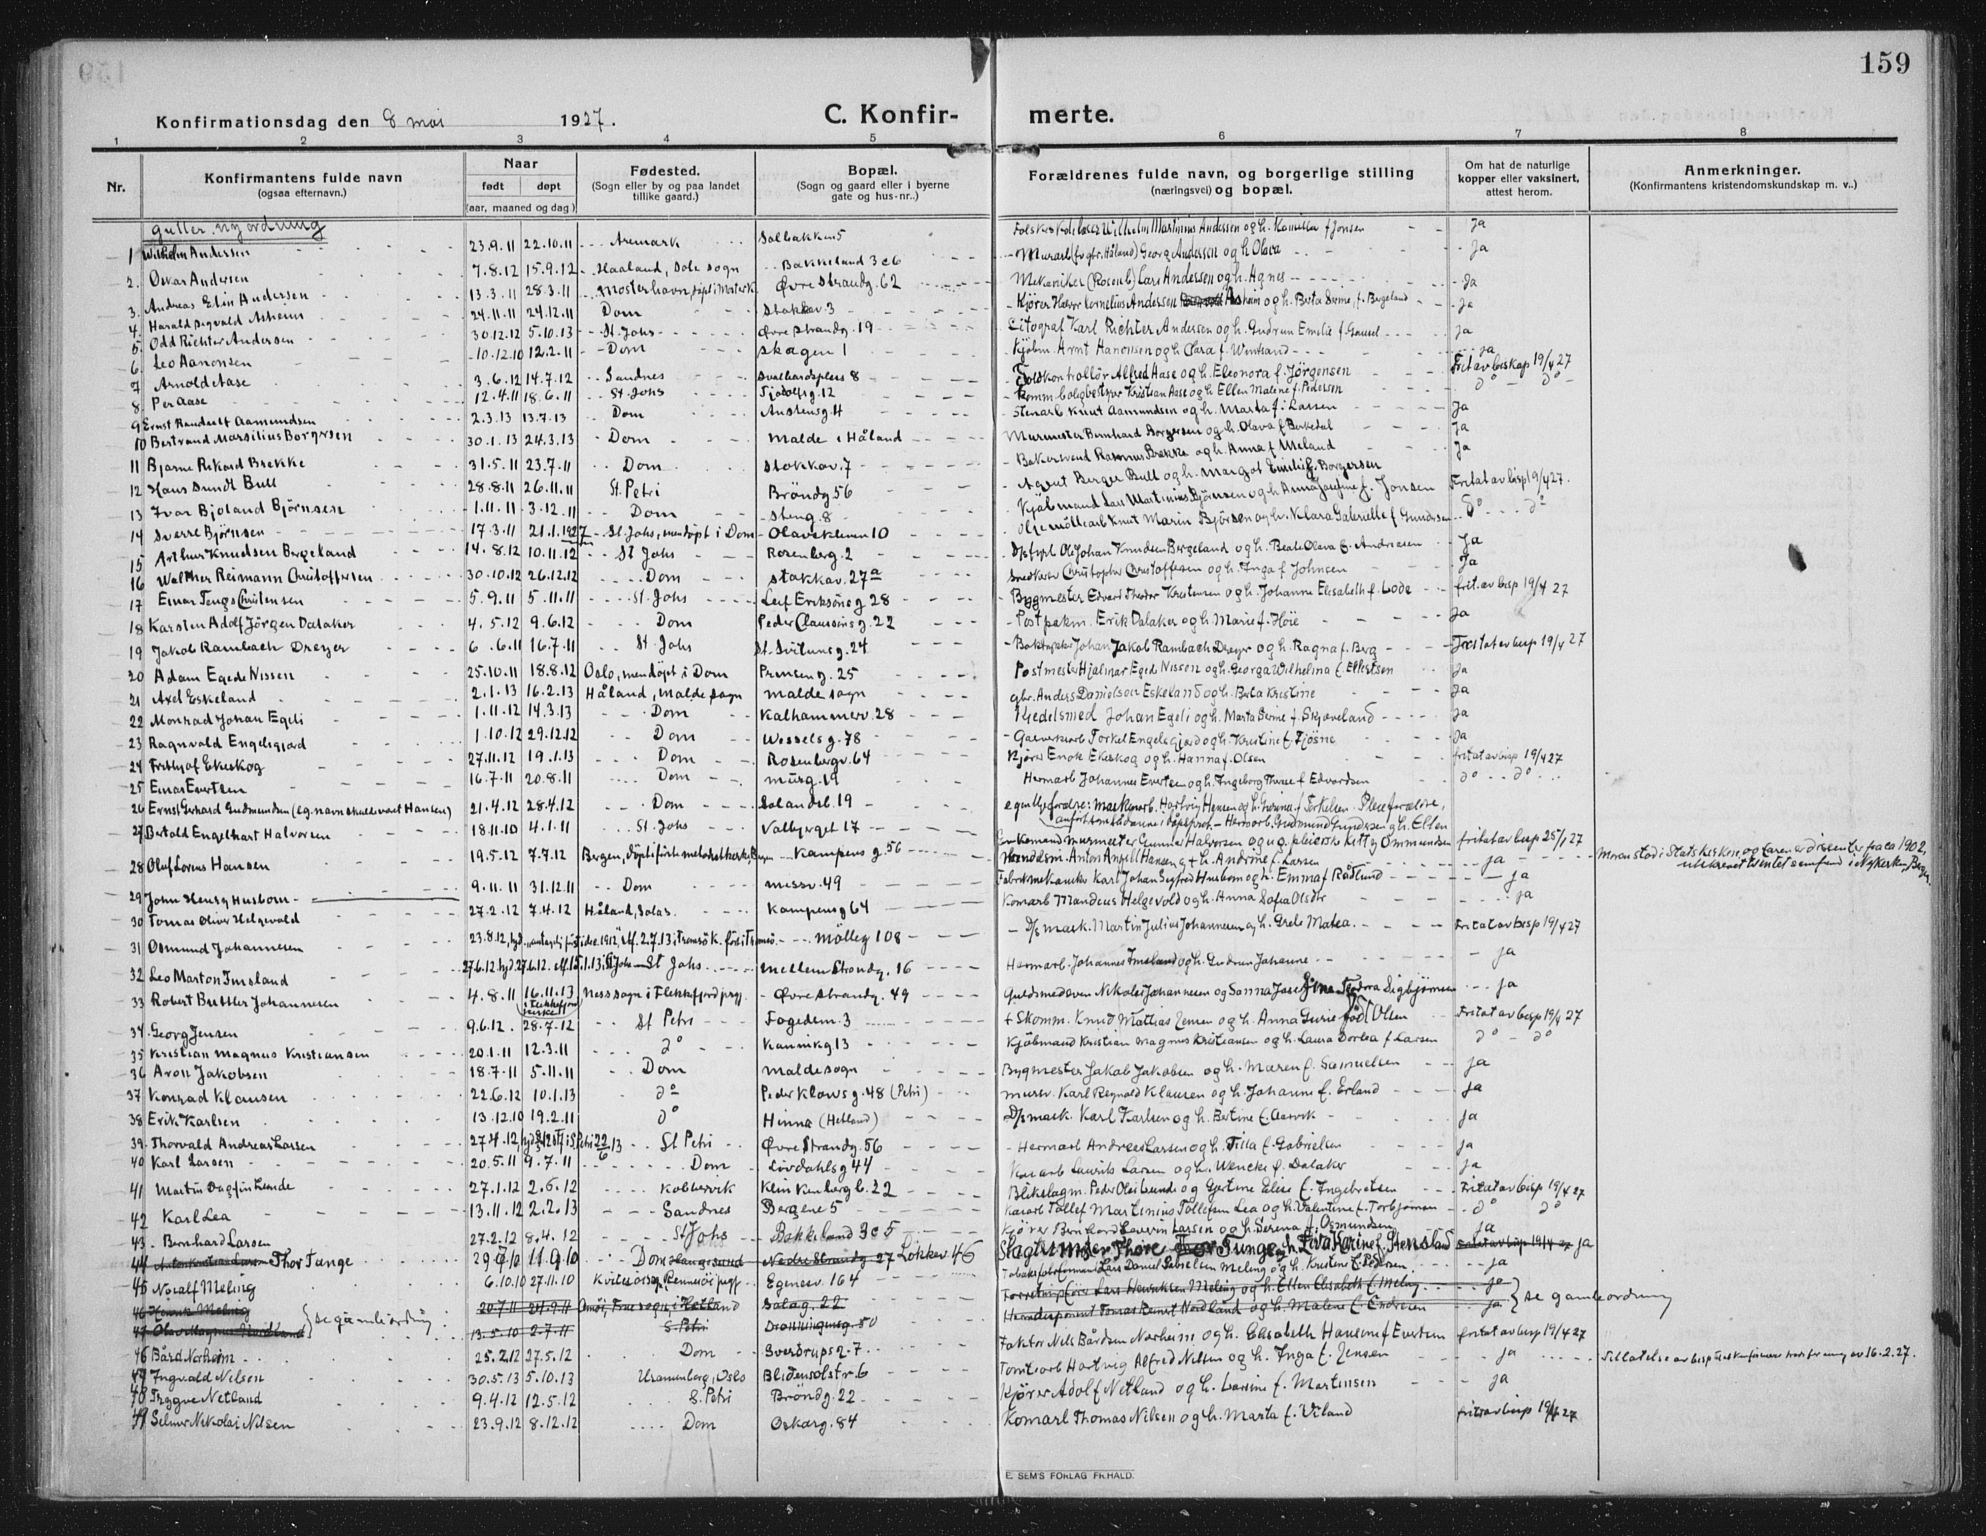 159
Konfirmationsdag den 8 mai 1927.
C. Konfir- merte.
1 2 3 4 5 6 7 8
Nr.
Konfirmantens fulde navn
(ogsaa efternavn.)
Naar
født døpt
(aar, maaned og dag)
Fødested.
(Sogn eller by og paa landet
tillike gaard.)
Bopæl.
(Sogn og gaard eller i byerne
gate og hus-nr..)
Forældrenes fulde navn, og borgerlige stilling
(næringsvei) og bopæl.
Om hat de naturlige
kopper eller vaksinert,
attest herom.
Anmerkninger.
(Konfirmantens kristendomskundskap m. v..)
Gutter. nyordning
1 Wilhelm Andersen 23.9.11 22.10.11 Aremark Solbakken 5 Wilhelm Martinius Andersen og h. Kamilla f Jonsen Ja
2. Oskar Andersen 7.8.12 15.9.12 Haaland, Sole sogn Bakkeland 3c6 Murarb. (fv gbr. Håland) Georg Andersen og h Olava Ja
3. Andreas Elin Andersen 13.3.11 28.3.11 Mosterhavn, døpt i Moster k. Øvre Strandg. 62 Mekaniker (Rosenb) Lars Andersen og h. Agnes Ja
4. Harald Sigvald Asheim 24.11.11 24.12.11 Dom Stokkav. 3 Kjører Kornelius Andersen Asheim og h. Berta Serine f. Bergeland Ja
5. Odd Richter Andersen 30.12.12 5.10.13 St. Johs Øvre Strandg. 19 Litograf Karl Richter Andersen og h. Gudrun Emilie f. Gausel Ja
6. Leo Aanonsen 10.12.10 12.2.11 Dom Skagen 1 Kjøbm. Arnt Hanonsen og h Clara f. Wintrand ja
7 Arnold Aase 3.6.12 14.7.12 Sandnes Svalbardsplass 8 Toldkontrollør Alfred Aase og h. Eleonora f. Jörgensen Frit av beskap 19/4 27
8 Per Aase 12.4.11 18.6.11 St. Johs Tjodolfsg. 12 Kristian Aase og h. Ellen Malene f. Pedersen do do
9 Ernst Randulf Aamundsen 2.3.13 13.7.13 Dom Austensg. 4 Stenarb Knut Aamundsen og h. Marta f. Larsen Ja
10 Bertrand Marsilius Borgersen 30.1.13 24.3.13 Dom Malde i Håland Murmester Bernhard Borgersen og h. Olava f Birkedal Ja
11 Bjarne Rikard Brekke 31.5.11 23.7.11 Dom Stokkav. 7 Bakersvend Rasmus Brekke og h. Anna f Meland Ja
12 Hans Sundt Bull 28.8.11 26.11.11 St. Petri Bröndg 56 Agent Berger Bull og h. Margot Emilie f. Borgersen Fritat av bisp 19/4 27.
13 Ivar Bjoland Björnsen 1.11.11 3.12.11 Dom Steng. 8 Kjøbmand Lars Martinius Björnsen og h Anna Josefine f. Jonsen do do
14 Sverre Björnsen 17.3.11 21.1.1927 St. Johs, men døpt i Dom Olavskleven 10 Knut Marin Björsen og h. Klara Gabrielle f Gundersen
15 Arthur Knudsen Bergeland 14.8.12 10.11.12 St Johs Rosenberg. 2 Ole Johan Knudsen Bergeland og h. Beate Olava f. Andreasen Ja
16 Walther Reimann Christoffersen 30.10.12 26.12.12 Dom Stokkav. 27a Snedker Christopher Christoffersen og h. Inga f Johnsen Ja
17 Einar Tengs Christensen 5.9.11 5.11.11 St. Johs Leif Eriksöns g 28 Bygmester Edvard Theodor Kristensen og h. Johanne Elisabeth f. Lode frit av bisp 19/4 27
18 Karsten Adolf Jörgen Dalaker 4.5.12 9.6.12 Dom Peder Claussöns g. 22 Postpakm. Erik Dalaker og h. Marie f. Höie Ja
19 Jakob Rambach Dreyer 6.6.11 16.7.11 St. Johs St. Svituns g. 24 Johan Jakob Rambach Dreyer og h. Ragna f. Berg Fritat av bisp 19/4 27
20 Adam Egede Nissen 25.10.11 18.8.12 Oslo, men døpt i Dom Prinseng. 25 Postmester Hjalmar Egede Nissen og h. Georga Wilhelmina f. Ellertsen Ja
21 Axel Eskeland 2.1.13 16.2.13 Håland, Malde sogn Malde sogn gbr. Anders Danielson Eskeland og h. Berta Kristine Ja
22 Monrad Johan Egeli 1.11.12 14.3.13 Dom Kalhammerv. 28 Kjedelsmed Johan Egeli og h. Marta Serine f. Skjæveland Ja
23 Ragnvald Engelsgjerd 1.10.12 29.12.12 Dom Wessels g. 78 Torkel Engelsgjerd og h. Kristine f. Tjösne Ja
24 Fritjof Ekeskog 27.11.12 19.1.13 Dom Rosenbergv. 64 Kjører Enok Ekeskog og h. Hanna f. Olsen fritat av bisp 19/4 27
25 Einar Evertsen 16.7.11 20.8.11 Dom Murg. 19 Hermarb Johannes Evertsen og h. Ingeborg Therese f Edvardsen do do
26 Ernst Gerhard Gudmundsen (eg. navn skulde vært Hansen) 21.4.12 28.4.12 Dom Solandsb. 19 egentlige forældre: maskinarb. Hartvig Hansen og h. f Torkelsen. Pleieforældre,
anført som forældrene i døpepret. Hermarb. Gudmund Gundersen og h. Ellen
27 Bertold Engelhart Halvorsen 18.11.10 4.1.11 St. Johs Valbjerget 17 murmester Gunnar Halvorsen og Kitty Ommundsen fritat av bisp 25/1 27
28 Oluf Lorens Hansen 19.5.12 7.7.12 Bergen, döpt Kampens g. 56 Anton Hansen og h. Andrine f. Larsen ja Moren stod i Statskirken og faren er dissenter fra ca 1902,
29 John Henry Husbom 9.11.11 31.12.11 Dom Messv. 49 Fabrikmekaniker Karl Johan Sigfred Husbom og h. Emma f Rätlund ja
30 Tomas Oliver Helgevold 27.2.12 7.4.12 Håland, Solas. Kampens g 64 Komarb Mandeus Helgevold og h. Anna Sofia Olsdtr ja
31 Osmund Johannesen 23.8.12, 2.7.13 i Tromsö k. född i Tromsö Mölleg 108 D/S mask. Martin Julius Johannesen og h. Grete Matea Fritat av bisp 19/4 27
32 Leo Marton Imsland 27.6.12 St Johs Mellem Strandg. 16 Hermarb. Johannes Imsland og h. Gudrun Johanne ja
33 Robert Buttler Johannesen 4.8.11 16.11.13 i Flekkefjord kirke Nes sogn i Flekkefjord prgj. Øvre Strandg. 49 Guldsmedsven Nikolai Johannesen og Sigbjørnsen ja
34 Georg Jensen 9.6.12. 28.7.12 St Petri Fogedsm. 3 + Skomm. Knud Mathias Jensen og h. Anna Gurie född Olsen Fritat av bisp 19/4 27
35 Kristian Magnus Kristiansen 20.1.11 12.3.11 do Kannikg 13 Kjøbmand Kristian Magnus Kristiansen og h. Laura Dortea f Larsen do do
36 Aron Jakobsen 18.7.11 5.11.11 Dom Malde sogn Bygmester Jakob Jakobsen og h. Maren f. Samuelsen Ja
37 Konrad Klausen 22.6.12 10.1.13 do Peder Klows g. 48 (Petri) Murer. Karl Reynold Klausen og h. Johanne f. Erland Ja
38 Erik Karlsen 13.12.10 19.2.11 do Hinna (Hetland) D/S mask. Karl Karlsen og h. Bertine f. Aarvik ja
39. Thorvald Andreas Larsen 27.4.12 St Petri Øvre Strandg. 56 Hermarb Andreas Larsen og h. Tilla f. Gabrielsen Ja
40 Karl Larsen 20.5.11 9.7.11 Dom Lövdahls g 44 Laurits Larsen og h. Wencke f. Dalaker Ja
41 Martin Dagfin Lunde 27.1.12 2.6.12 Kobbervik Klinkenberg b. 22 Blikslagm. Peder Olai Lunde og Gjertine Elise f. Ingebretsen Fritat av bisp 19/4 27
42 Karl Lea 13.11.12 2.2.13 Sandnes Bergene 5 Tollef Martinius Tollefsen Lea og h. Valentine f. Torbjørnsen do do
43. Bernhard Larsen 27.2.12 8.4.12 St Johs Bakkeland 3c5 Kjører Bernhard Severin Larsen og h. Serena f. Osmundsen ja
44 Thor Tunge 29.9.10 11.9.10 Dom Nedre Strandg 27 Lökkev. 46 Slagtermester Thore Tunge og h. Eva Karine f. Stensland fritat av bisp 19/4 27 ja
45 Norolf Meling 6.10.10 27.11.10 Kvitsöy s. Rennesöi prgj Egenesv. 164 Lars Daniel Gabrielsen Meling og h. Kristine f. Pedersen ja
46 Henrik Meling 20.7.11 24.9.11 Amöi, Frue sogn, i Hetland Solag. 22 Lars Henriksen Meling og h. Ellen Elisabeth f. Meling ja
47 Olav Magnus Nordland 13.5.10 2.7.11 S. Petri Dronningensg. 80 Tomas Nordland og h. Malene f. Endresen ja
} se gamle ordning } se gamle ordning
46 Bård Norheim 25.2.12 27.5.12 Dom Sverdrups g. 7 Faktor Nels Bårdsen Norheim og h. Elisabeth Hansine f Evertsen fritat av bisp 19/4 27
47 Ingvald Nilsen 30.5.13 5.10.13 Uranienborg, Oslo Blidensolstr. 6 Tomtarb Hartvig Alfred Nilsen og h. Inga f. Jensen ja Tillatelse av bisp 16.2.27.
48 Trygve Netland 9.4.12 12.5.12 S. Petri Bröndg. 22 Kjører Adolf Netland og h. Lovise f. Martinsen ja
49 Selmer Nikolai Nilsen 23.9.12 8.12.12 Dom Oskarg. 84 Komarb Thomas Nilsen og h. Marta f. Viland frit av bisp 19/4 27
E. SEM'S FORLAG FR.HALD.